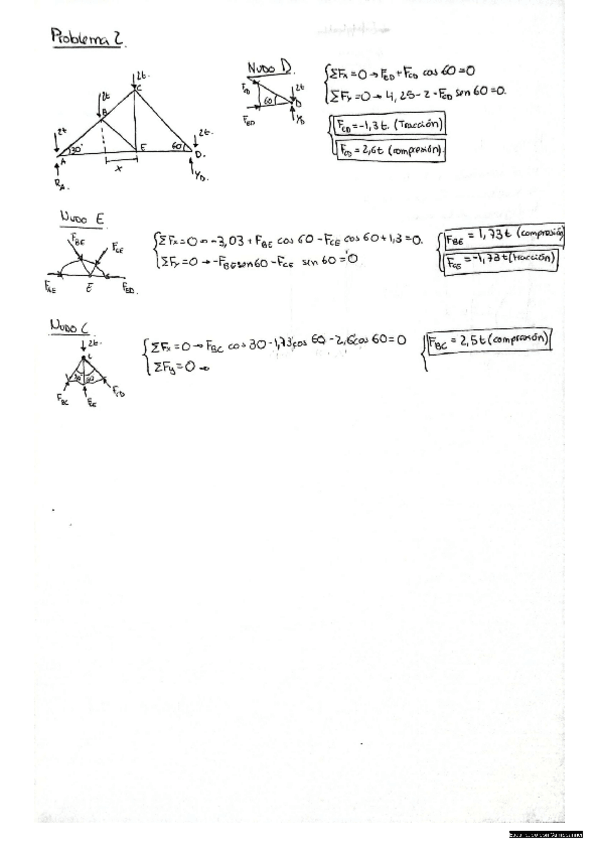 Problema 2.
2t.
C
2t
B
2t
2t.
A
30°
E
60°
D.
x
R_A.
Y_D.
NUDO D.
F_CD
2t
60
D
F_ED
Y_D
ΣFx=0 → F_ED + F_CD cos 60=0
ΣFy=0 → 4,25-2-F_CD sen 60=0.
F_ED=-1,3t. (Tracción)
F_CD = 2,6t (compresión).
NUDO E
F_BE
F_CE
F_AE
E
F_ED.
ΣFx=0 → -3,03 + F_BE cos 60 - F_CE cos 60 + 1,3=0.
ΣFy=0 → -F_BE sen 60 - F_CE sen 60 = 0
F_BE = 1,73t (compresión)
F_CE = -1,73t (tracción)
NUDO C
2t.
C
30
F_BC
F_CD
ΣFx=0 → F_BC cos 30 - 1,73cos 60 - 2,6cos 60=0
ΣFy=0 →
F_BC = 2,5t (compresión)